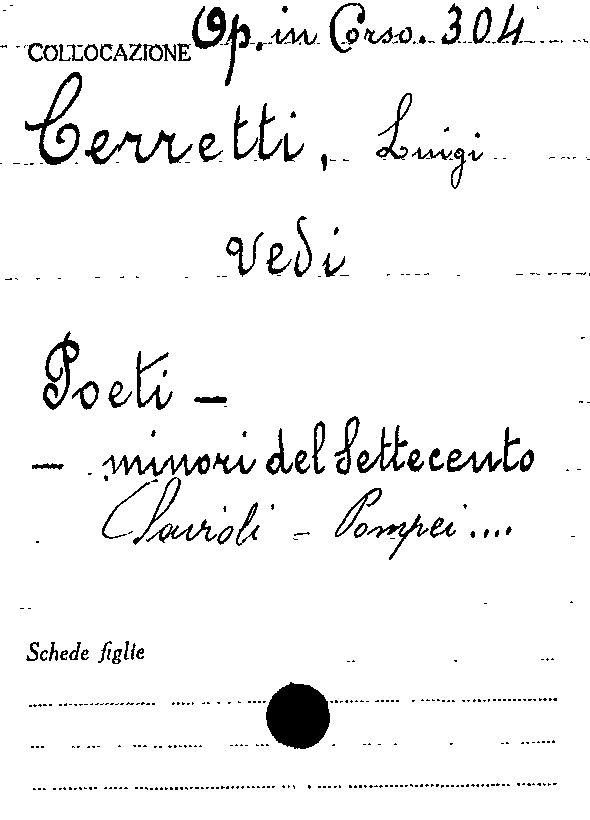 COLLOCAZIONE Op. in Corso. 304
Cerretti, Luigi
vedi
Poeti -
- minori del Settecento
Savioli - Pompei....
Schede figlie